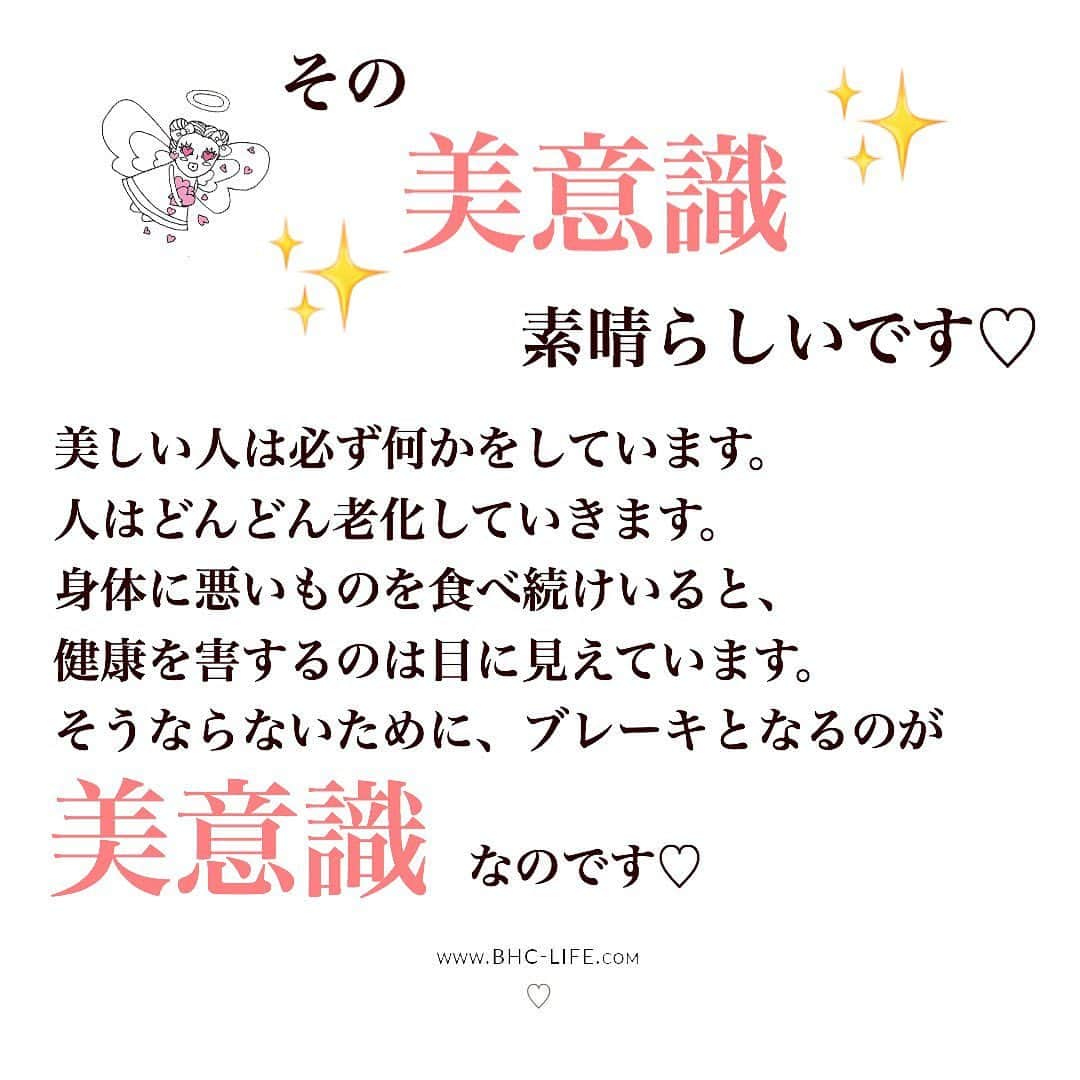 その
美意識
素晴らしいです♡
美しい人は必ず何かをしています。
人はどんどん老化していきます。
身体に悪いものを食べ続けいると、
健康を害するのは目に見えています。
そうならないために、ブレーキとなるのが
美意識 なのです♡
www.BHC-LIFE.com
♡